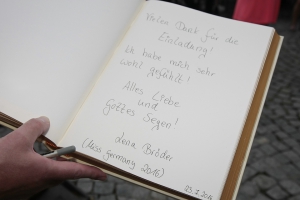 Vielen Dank für die
Einladung!
Ich habe mich sehr
wohl gefühlt!
Alles Liebe
und
Gottes Segen!
Lena Bröder
(Miss Germany 2016)
2016